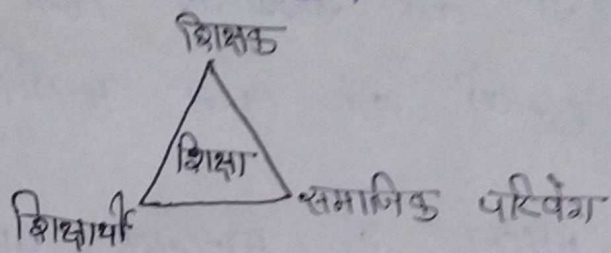 शिक्षक
शिक्षा
शिक्षार्थी
समाजिक परिवेश